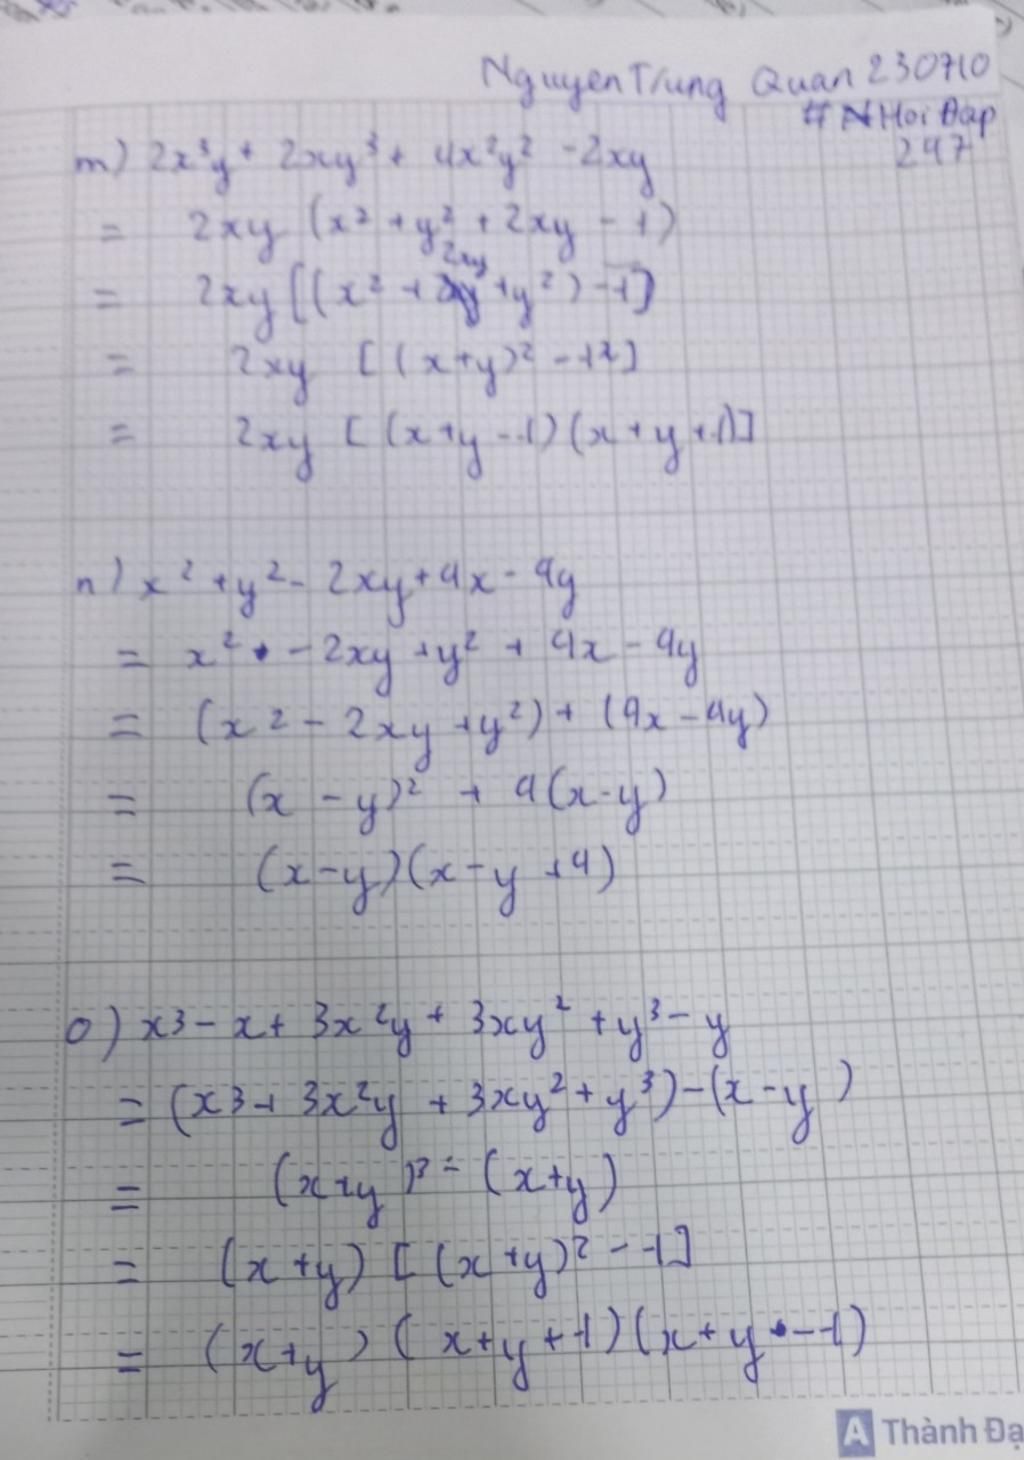 Nguyen Trung Quan 230710
# NHoi Đap
247
m) 2x³y + 2xy³ + 4x²y² - 2xy
= 2xy (x² + y² + 2xy - 1)
2xy
= 2xy [(x² + y² ) - 1]
= 2xy [ (x+y)² - 1²]
= 2xy [ (x+y - 1) (x + y + 1)]
n) x² + y² - 2xy + 4x - 4y
= x² - 2xy + y² + 4x - 4y
= (x² - 2xy + y²) + (4x - 4y)
= (x - y)² + 4(x-y)
= (x-y)(x-y + 4)
o) x³ - x + 3x²y + 3xy² + y³ - y
= (x³ + 3x²y + 3xy² + y³) - (x - y )
= (x+y )³ - (x+y)
= (x+y) [ (x+y)² - 1]
= (x+y ) ( x+y+1)(x+y - 1)
A Thành Đạ